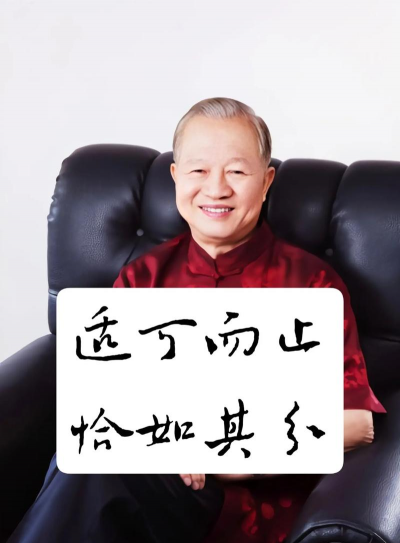 适可而止
恰如其分